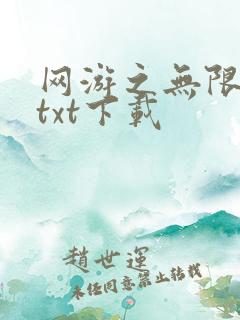 网游之無限
txt下載
趙世運
未任同意禁止转载